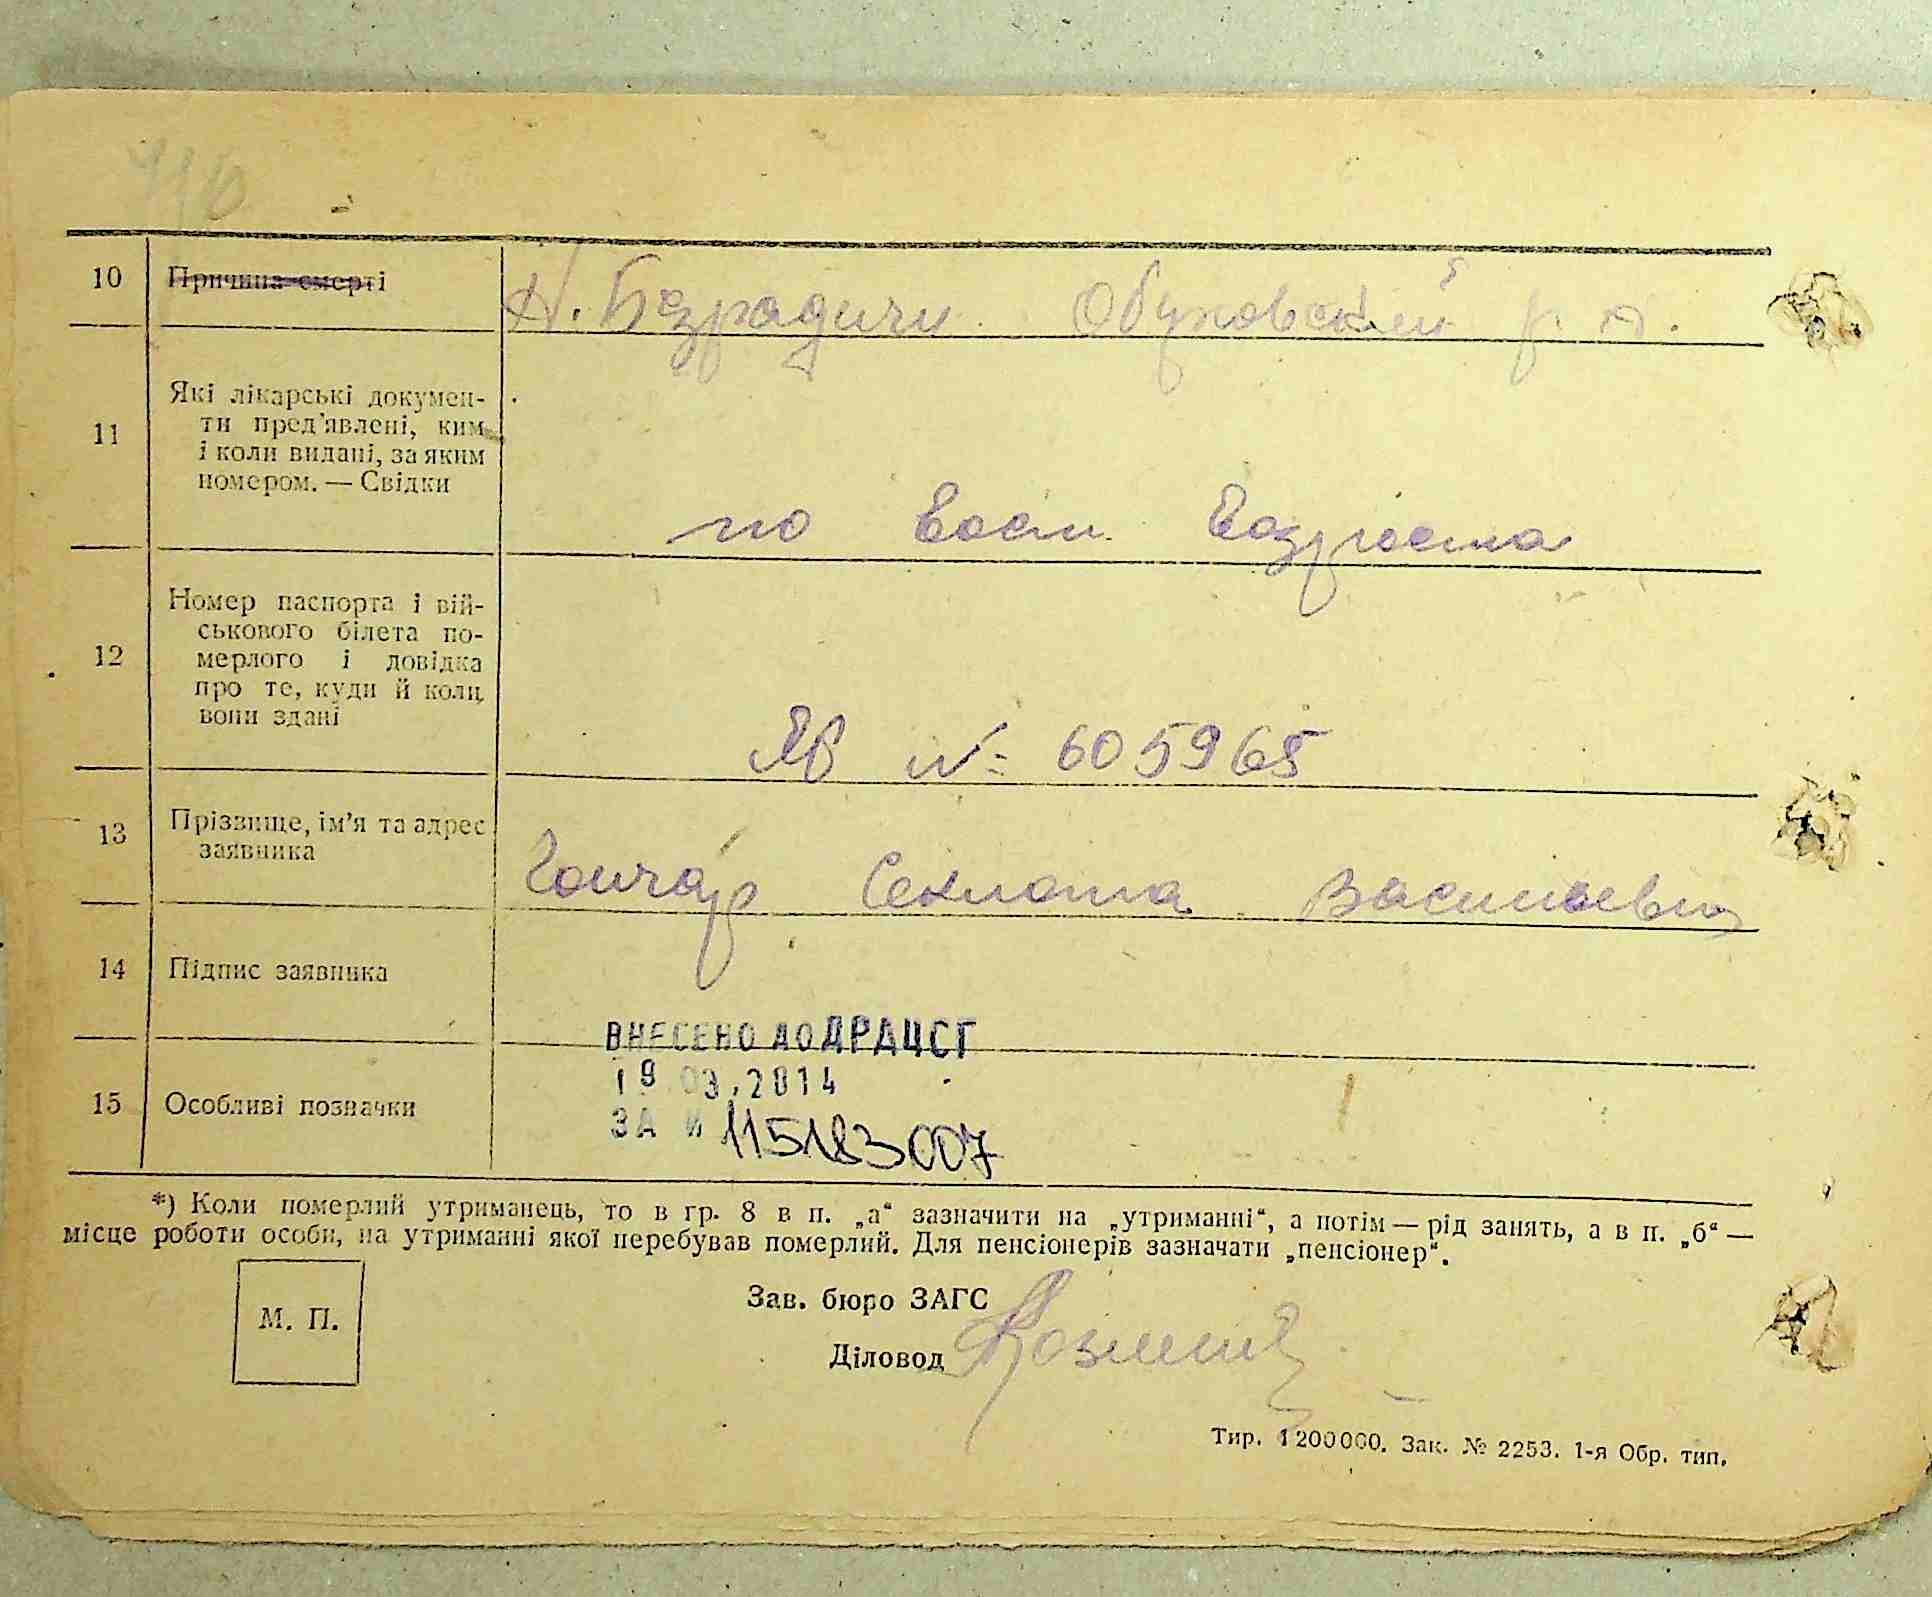 10 Причина смерті Н. Безрадичи Обуховский р-н.
11 Які лікарські докумен-
ти пред'явлені, ким
і коли видані, за яким
номером. — Свідки
по восст. возраста
12 Номер паспорта і вій-
ськового білета по-
мерлого і довідка
про те, куди й коли
вони здані
№ 605965
13 Прізвище, ім'я та адрес
заявника
Гончар Секлета Васильевна
14 Підпис заявника
ВНЕСЕНО ДО ДРАЦСГ
19.03.2014
15 Особливі позначки
ЗА № 115183007
*) Коли померлий утриманець, то в гр. 8 в п. „а“ зазначити на „утриманні“, а потім — рід занять, а в п. „б“ —
місце роботи особи, на утриманні якої перебував померлий. Для пенсіонерів зазначати „пенсіонер“.
М. П.
Зав. бюро ЗАГС
Діловод
Тир. 1200000. Зак. № 2253. 1-я Обр. тип.